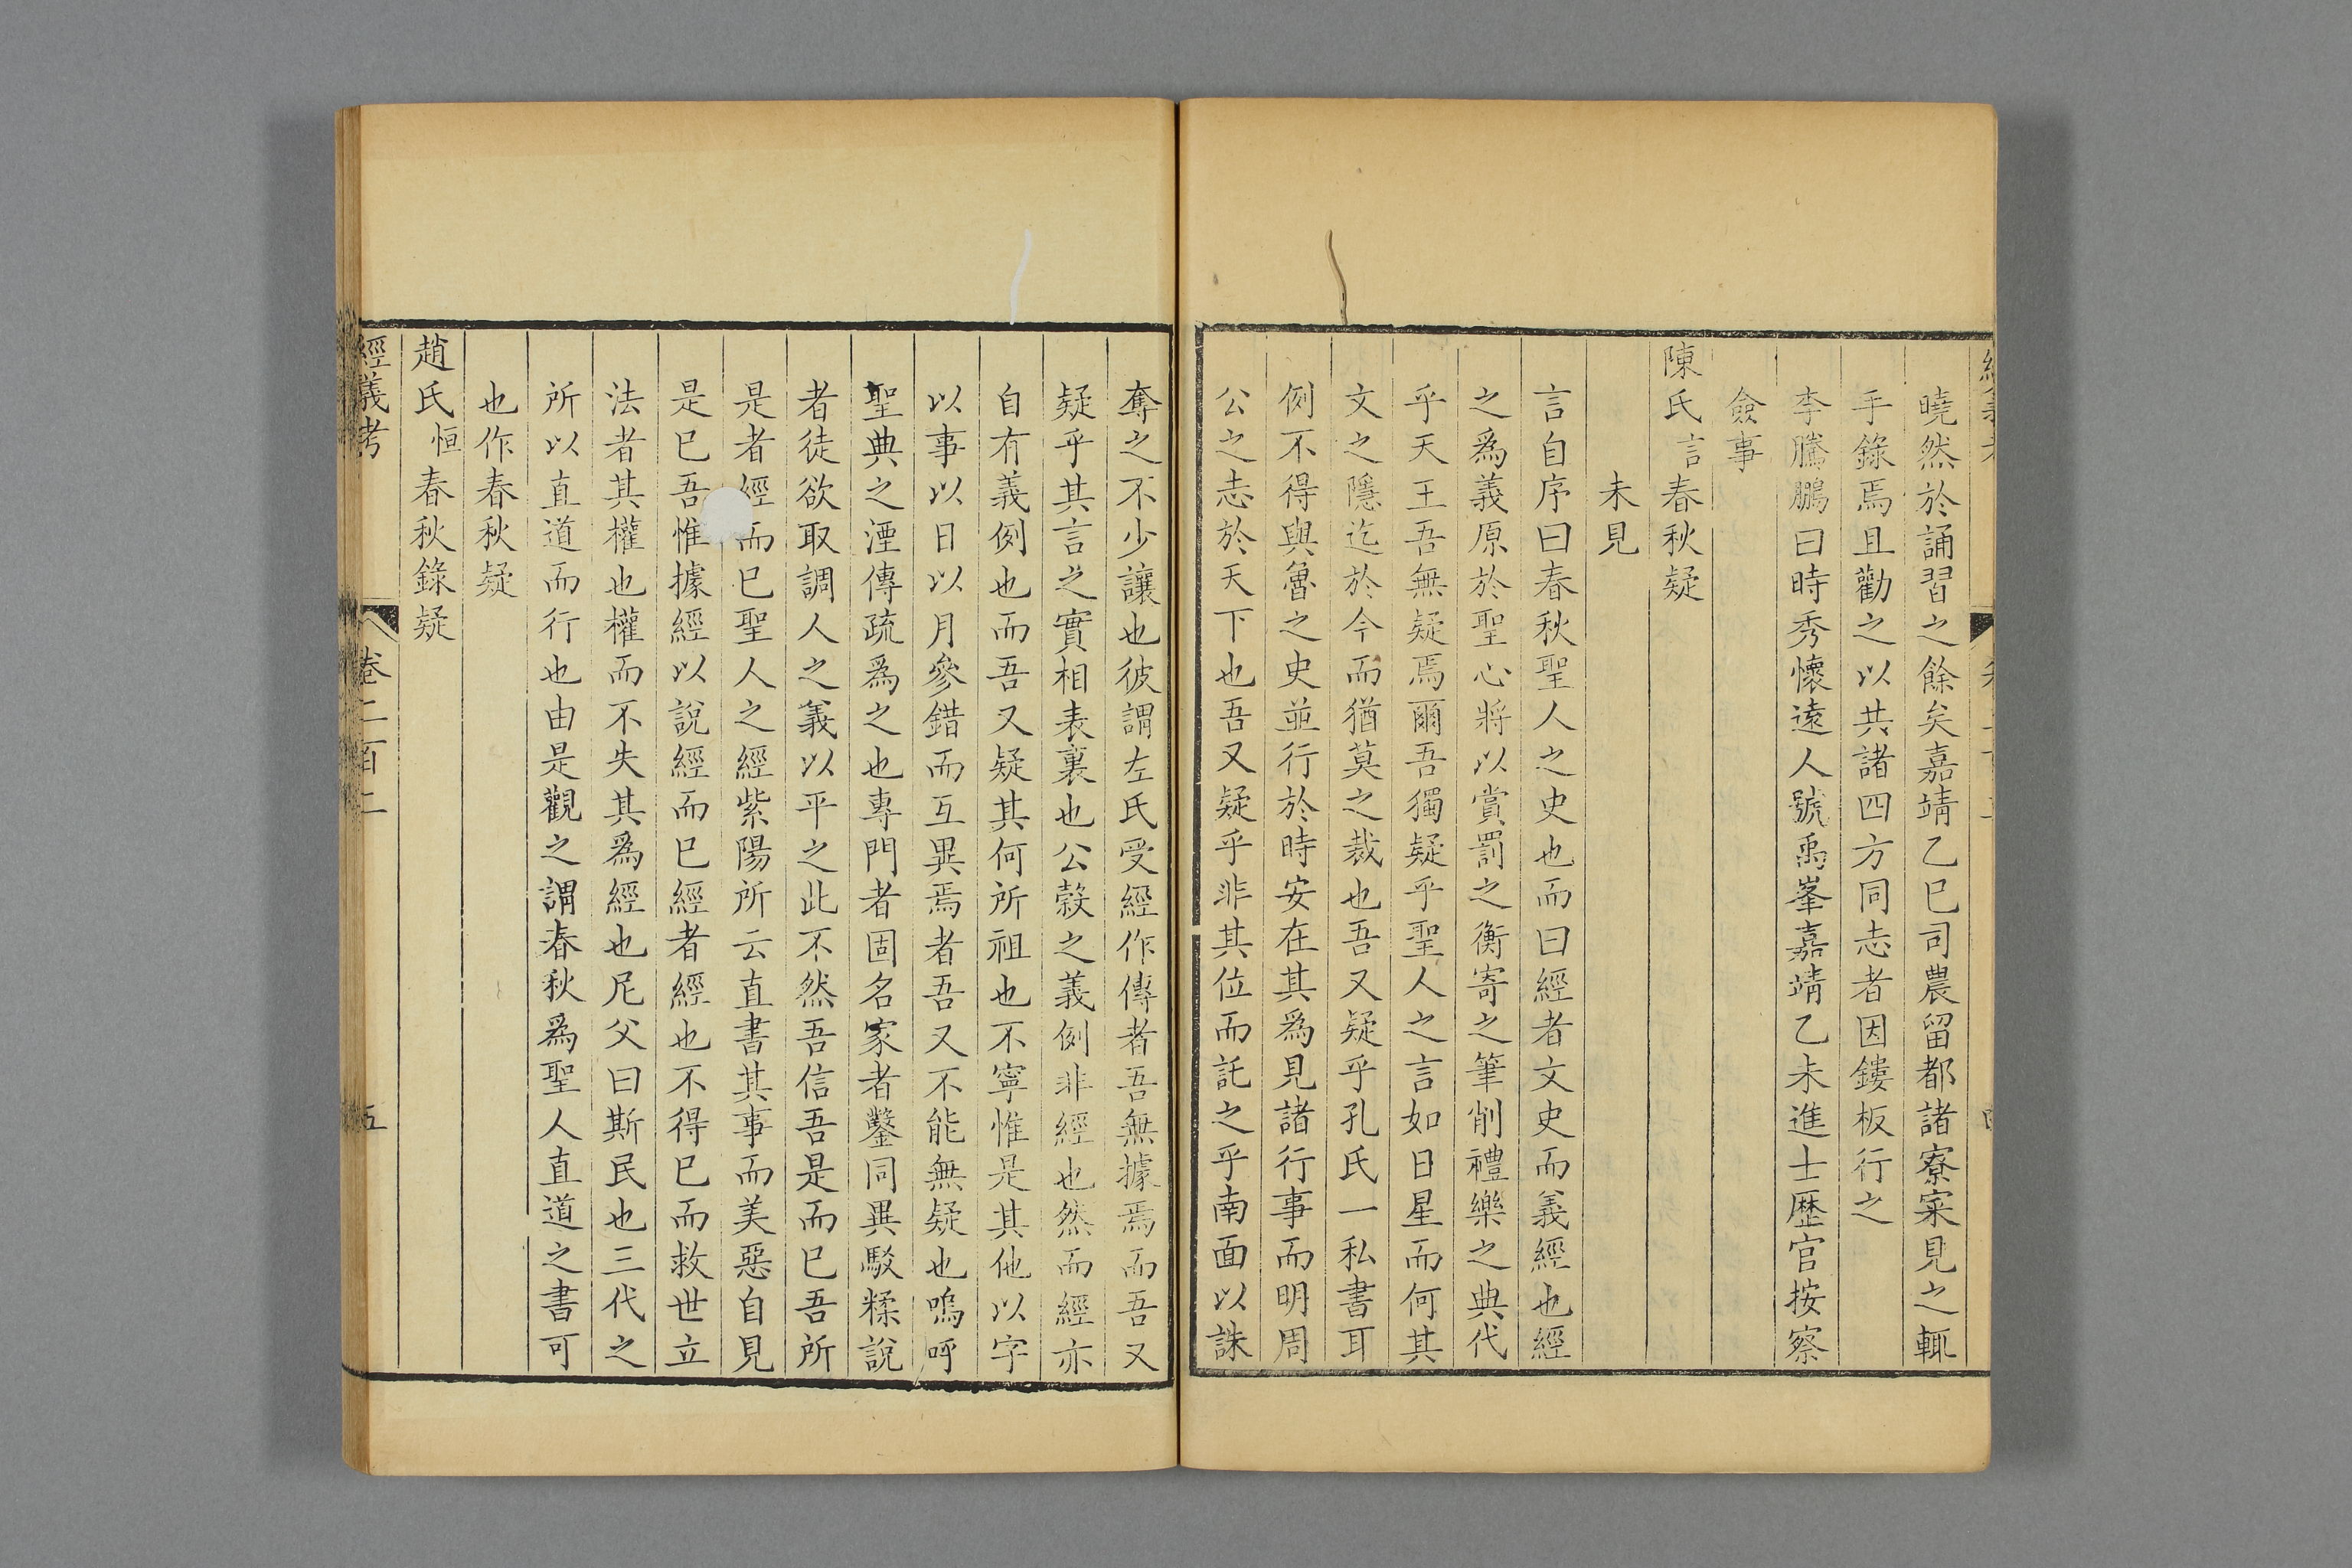 曉然於誦習之餘矣嘉靖乙巳司農留都諸寮寀見之輒
手錄焉且勸之以共諸四方同志者因鏤板行之
李騰鵬曰時秀懷遠人號禹峯嘉靖乙未進士歷官按察
僉事
陳氏言春秋疑
未見
言自序曰春秋聖人之史也而曰經者文史而義經也經
之爲義原於聖心將以賞罰之衡寄之筆削禮樂之典代
乎天王吾無疑焉爾吾獨疑乎聖人之言如日星而何其
文之隱迄於今而猶莫之裁也吾又疑乎孔氏一私書耳
例不得與魯之史並行於時安在其爲見諸行事而明周
公之志於天下也吾又疑乎非其位而託之乎南面以誅
奪之不少讓也彼謂左氏受經作傳者吾無據焉而吾又
疑乎其言之實相表裏也公穀之義例非經也然而經亦
自有義例也而吾又疑其何所祖也不寧惟是其他以字
以事以日以月參錯而互異焉者吾又不能無疑也嗚呼
聖典之湮傳疏爲之也專門者固名家者鑿同異駁糅說
者徒欲取調人之義以平之此不然吾信吾是而已吾所
是者經而已聖人之經紫陽所云直書其事而美惡自見
是已吾惟據經以說經而已經者經也不得已而救世立
法者其權也權而不失其爲經也尼父曰斯民也三代之
所以直道而行也由是觀之謂春秋爲聖人直道之書可
也作春秋疑
趙氏恒春秋錄疑
經義考 卷二百二 五